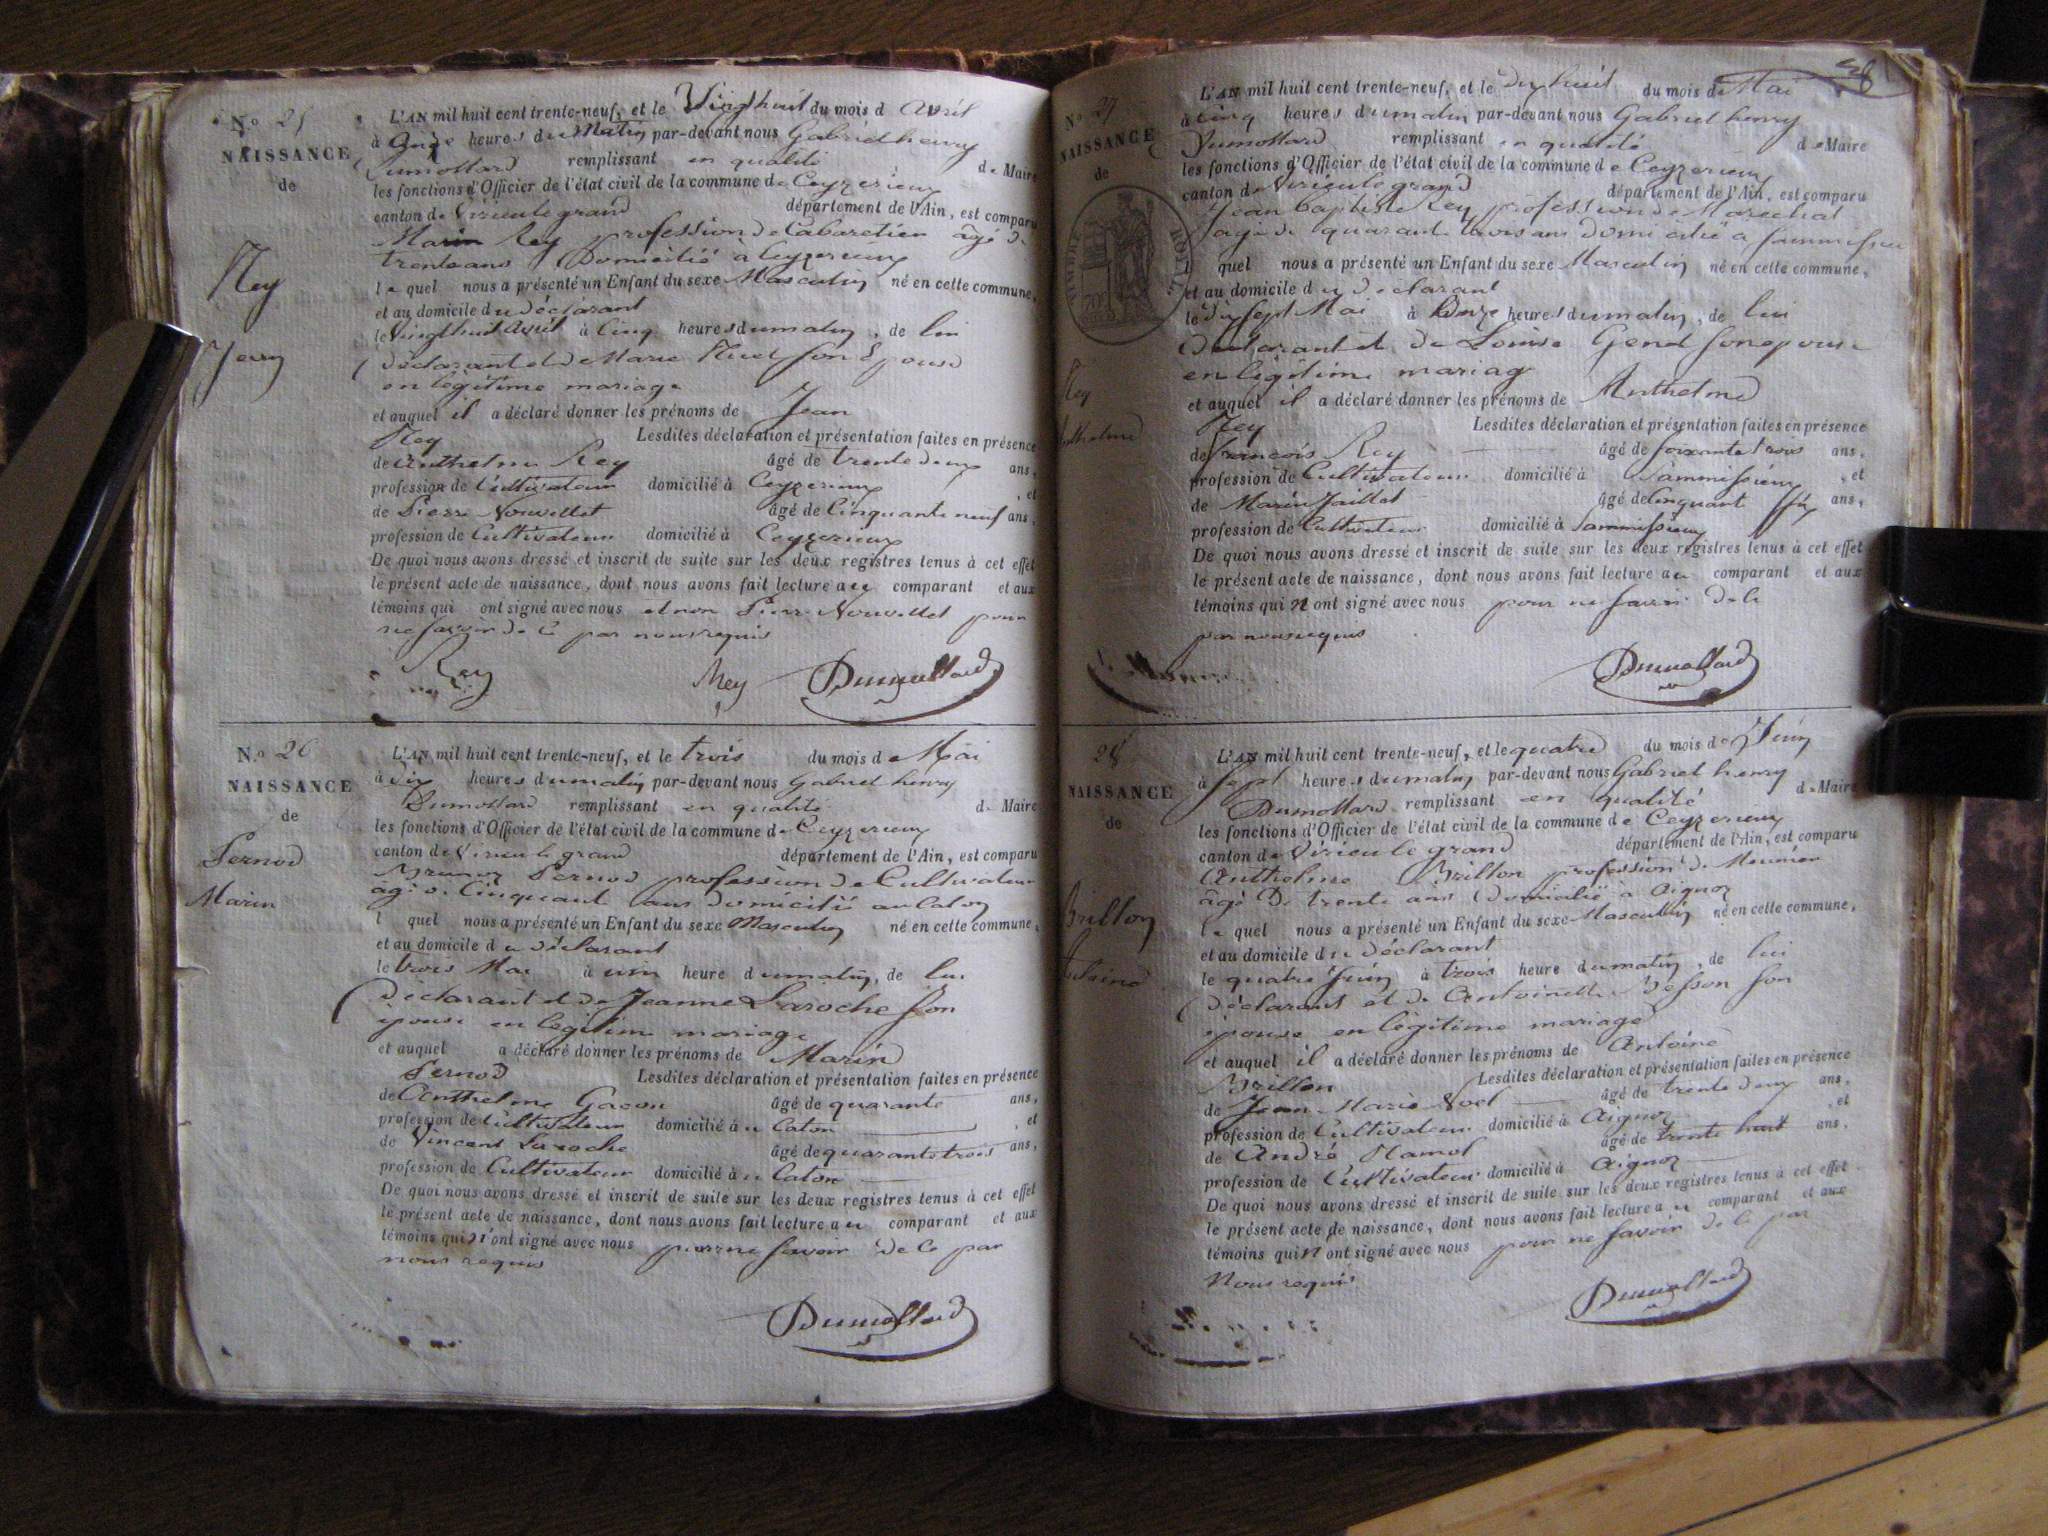 N.º 25
NAISSANCE
de
Rey
Jean
L'AN mil huit cent trente-neuf, et le Vingt huit du mois d avril
à onze heures du Matin par-devant nous Gabriel henry
Dumollard remplissant en qualité de Maire
les fonctions d'Officier de l'état civil de la commune de Ceyzerieux
canton de Virieu le grand département de l'Ain, est comparu
Marin Rey profession de Cabaretier âgé de
trente ans Domicilié à Ceyzerieux
le quel nous a présenté un Enfant du sexe Masculin né en cette commune,
et au domicile du déclarant
le vingt huit avril à Cinq heures du matin, de lui
déclarant et de Marie son Epouse
en legitime mariage
et auquel il a déclaré donner les prénoms de Jean
Rey Lesdites déclaration et présentation faites en présence
de Anthelme Rey âgé de trente deux ans,
profession de Cultivateur domicilié à Ceyzerieux, et
de Pierre Nouvellet âgé de Cinquante neuf ans,
profession de Cultivateur domicilié à Ceyzerieux
De quoi nous avons dressé et inscrit de suite sur les deux registres tenus à cet effet
le présent acte de naissance, dont nous avons fait lecture au comparant et aux
témoins qui ont signé avec nous et non Pierre Nouvellet pour
ne savoir de ce par nous requis
Rey Rey Dumollard
N.º 26
NAISSANCE
de
Pernod
Marin
L'AN mil huit cent trente-neuf, et le trois du mois de Mai
à dix heures du matin par-devant nous Gabriel henry
Dumollard remplissant en qualité de Maire
les fonctions d'Officier de l'état civil de la commune de Ceyzerieux
canton de Virieu le grand département de l'Ain, est comparu
Pernod profession de Cultivateur
âgé de Cinquante ans domicilié au Caton
l quel nous a présenté un Enfant du sexe Masculin né en cette commune,
et au domicile du déclarant
le trois Mai à une heure du matin, de lui
déclarant et de Jeanne Laroche son
épouse en legitime mariage
et auquel a déclaré donner les prénoms de Marin
Pernod Lesdites déclaration et présentation faites en présence
de Anthelme Gacon âgé de quarante ans,
profession de Cultivateur domicilié au Caton, et
de Vincent Laroche âgé de quarante trois ans,
profession de Cultivateur domicilié au Caton
De quoi nous avons dressé et inscrit de suite sur les deux registres tenus à cet effet
le présent acte de naissance, dont nous avons fait lecture au comparant et aux
témoins qui n'ont signé avec nous pour ne savoir de ce par
nous requis
Dumollard
N.º 27
NAISSANCE
de
TIMBRE ROYAL
Rey
Anthelme
L'AN mil huit cent trente-neuf, et le dix huit du mois de Mai
à cinq heures du matin par-devant nous Gabriel henry
Dumollard remplissant en qualité de Maire
les fonctions d'Officier de l'état civil de la commune de Ceyzerieux
canton de Virieu le grand département de l'Ain, est comparu
Jean Baptiste Rey profession de Marechal
âgé de quarante trois ans domicilié à Sammissieu
l quel nous a présenté un Enfant du sexe Masculin né en cette commune,
et au domicile du declarant
le dix sept Mai à Onze heures du matin, de lui
Déclarant et de Louise Gend son epouse
en légitime mariage
et auquel il a déclaré donner les prénoms de Anthelme
Rey Lesdites déclaration et présentation faites en présence
de françois Rey âgé de soixante trois ans,
profession de Cultivateur domicilié à Sammissieux, et
de Marin Jaillet âgé de Cinquante six ans,
profession de Cultivateur domicilié à Sammissieux
De quoi nous avons dressé et inscrit de suite sur les deux registres tenus à cet effet
le présent acte de naissance, dont nous avons fait lecture au comparant et aux
témoins qui n ont signé avec nous pour ne savoir de ce
par nous requis
Dumollard
28
NAISSANCE
de
Brillon
Antoine
L'AN mil huit cent trente-neuf, et le quatre du mois de Juin
à Sept heures du matin par-devant nous Gabriel henry
Dumollard remplissant en qualité de Maire
les fonctions d'Officier de l'état civil de la commune de Ceyzerieux
canton de Virieu le grand département de l'Ain, est comparu
Anthelme Brillon profession de Meunier
âgé De trente ans domicilié à aignoz
le quel nous a présenté un Enfant du sexe Masculin né en cette commune,
et au domicile du déclarant
le quatre Juin à trois heure du matin, de lui
déclarant et de Antoinette Besson son
épouse en légitime mariage
et auquel il a déclaré donner les prénoms de Antoine
Brillon Lesdites déclaration et présentation faites en présence
de Jean Marie Noel âgé de trente deux ans,
profession de Cultivateur domicilié à Aignoz, et
de André Hamol âgé de trente huit ans,
profession de Cultivateur domicilié à aignoz
De quoi nous avons dressé et inscrit de suite sur les deux registres tenus à cet effet
le présent acte de naissance, dont nous avons fait lecture au comparant et aux
témoins qui n ont signé avec nous pour ne savoir de ce par
Nous requis
Dumollard